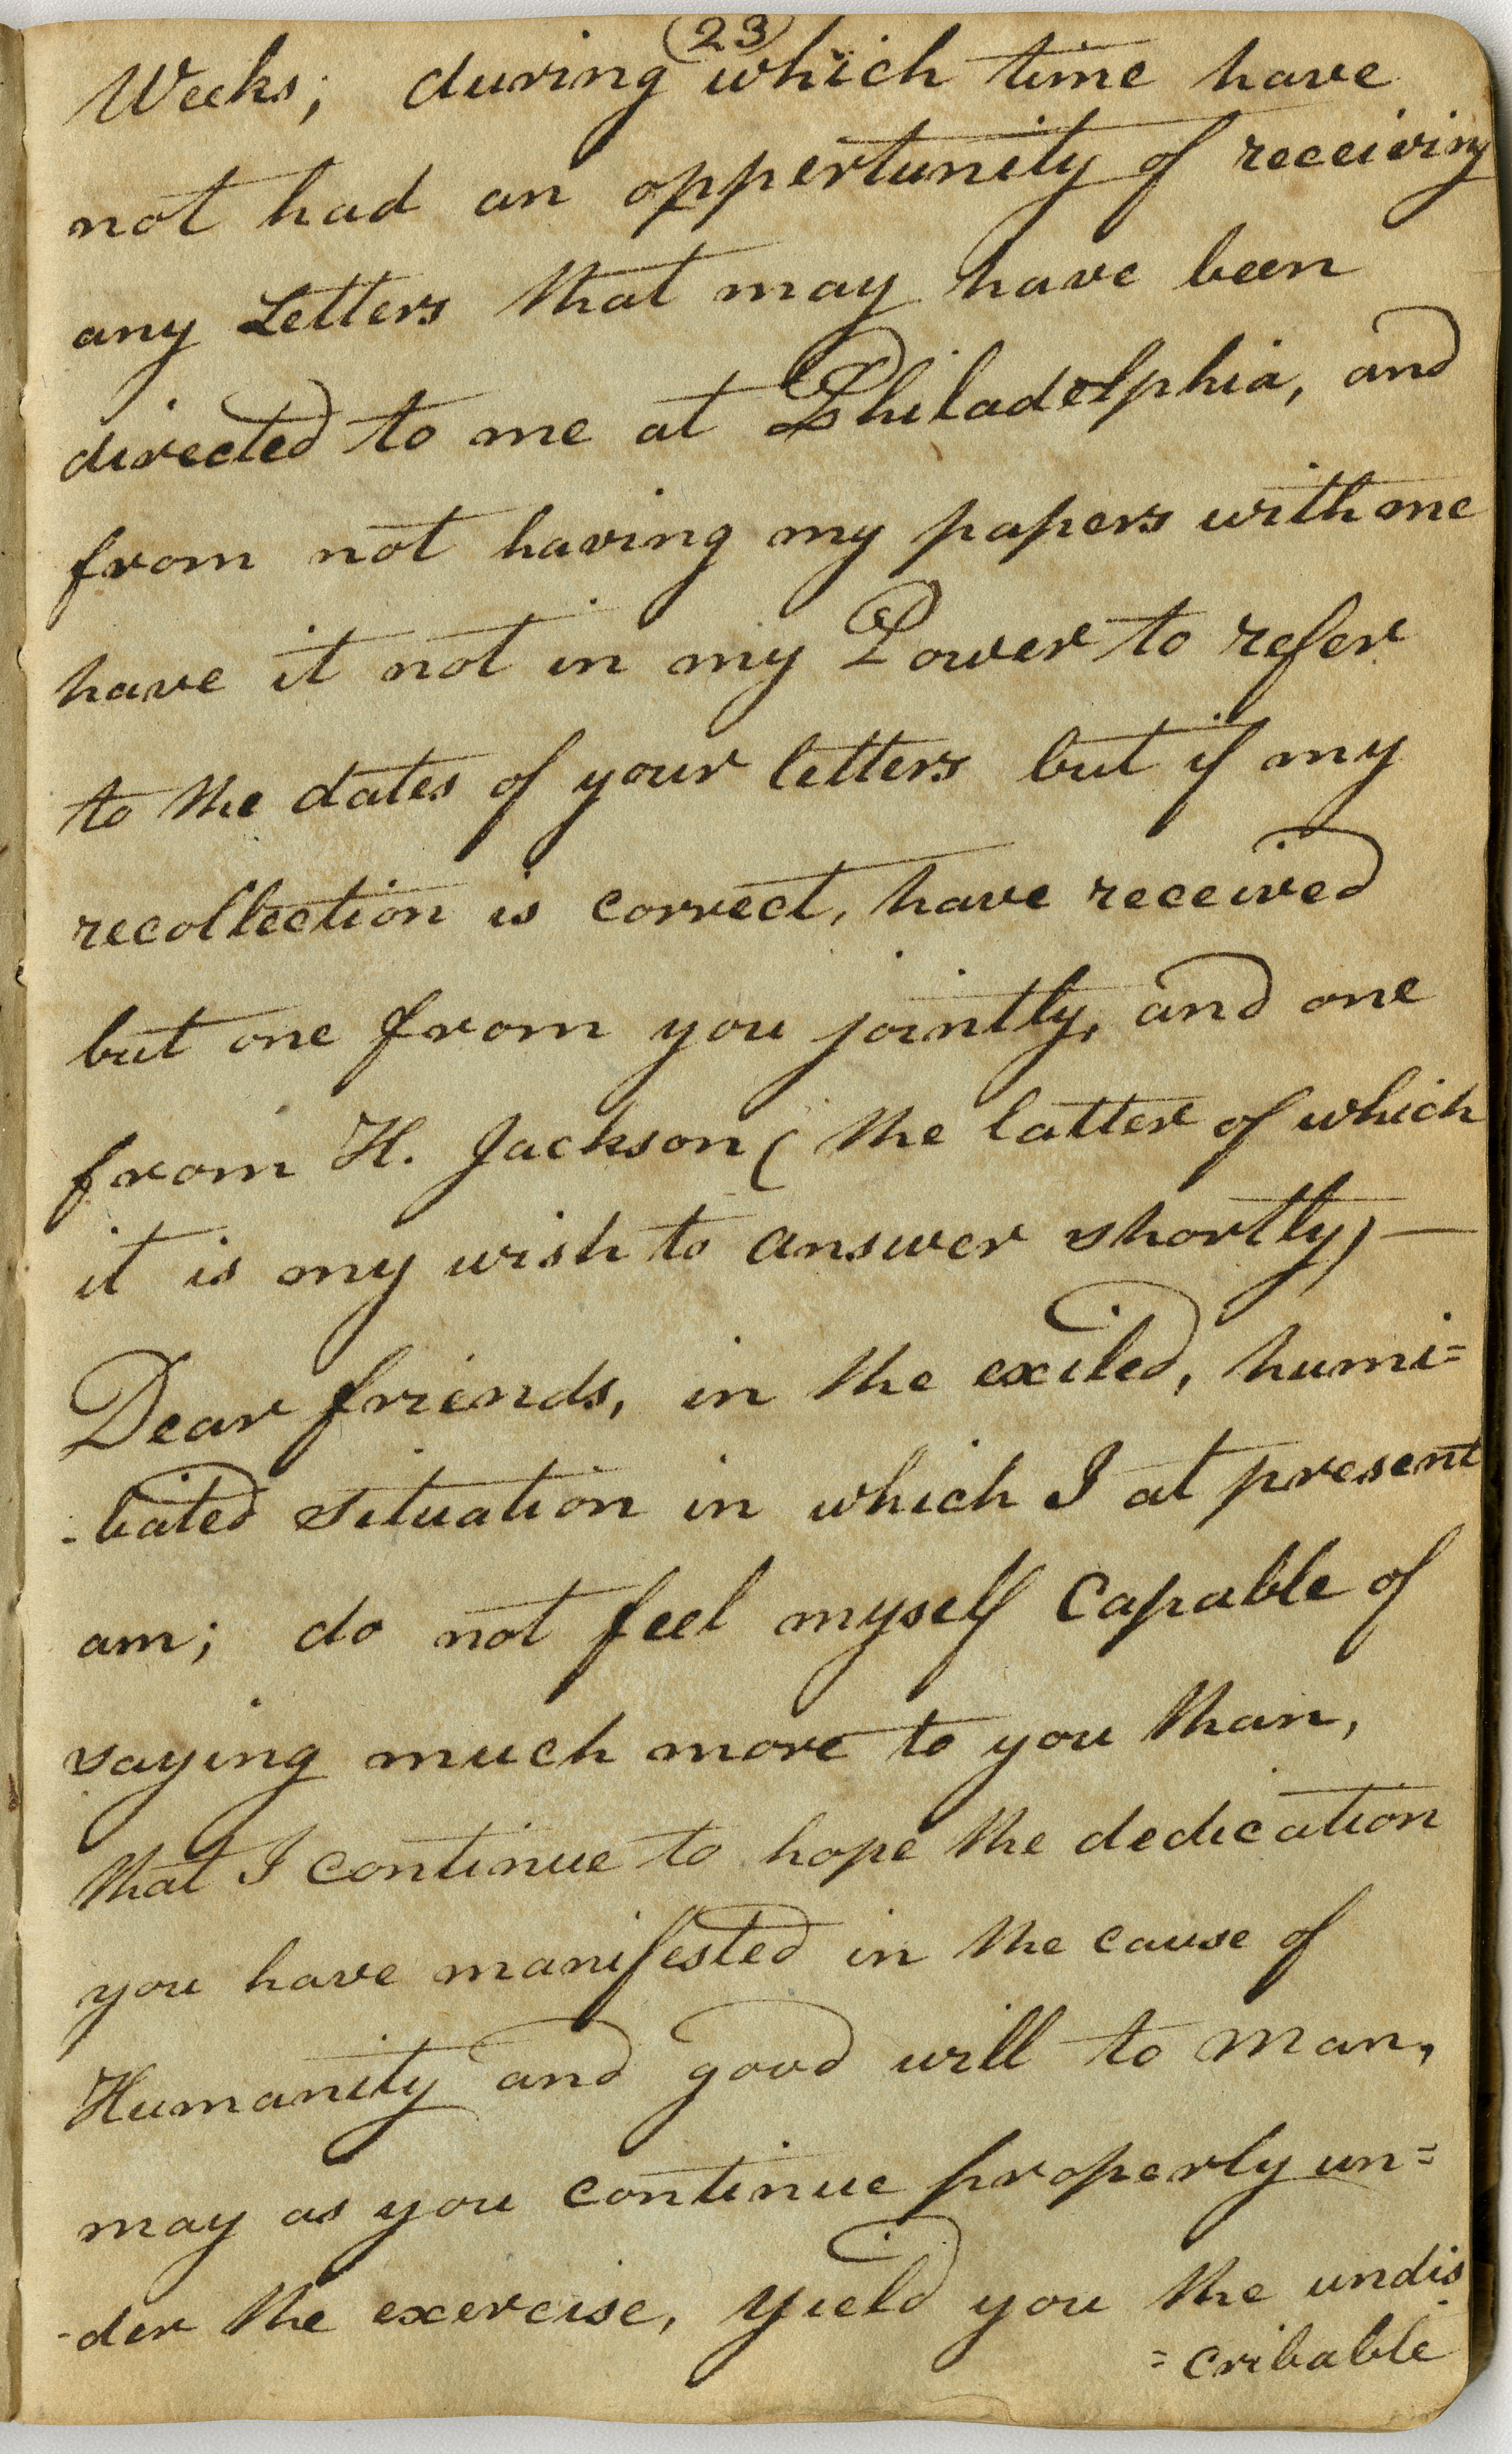 (23)
Weeks; during which time have
not had an oppertunity of receiving
any Letters that may have been
directed to me at Philadelphia, and
from not having my papers with me
have it not in my Power to refer
to the dates of your letters but if my
recollection is correct, have received
but one from you jointly, and one
from H. Jackson ( the latter of which
it is my wish to answer shortly) —
Dear friends, in the exiled, humi=
-liated situation in which I at present
am; do not feel myself Capable of
saying much more to you than,
that I continue to hope the dedication
you have manifested in the cause of
Humanity and good will to man,
may as you continue properly un=
-der the exercise, yield you the undis
=cribable